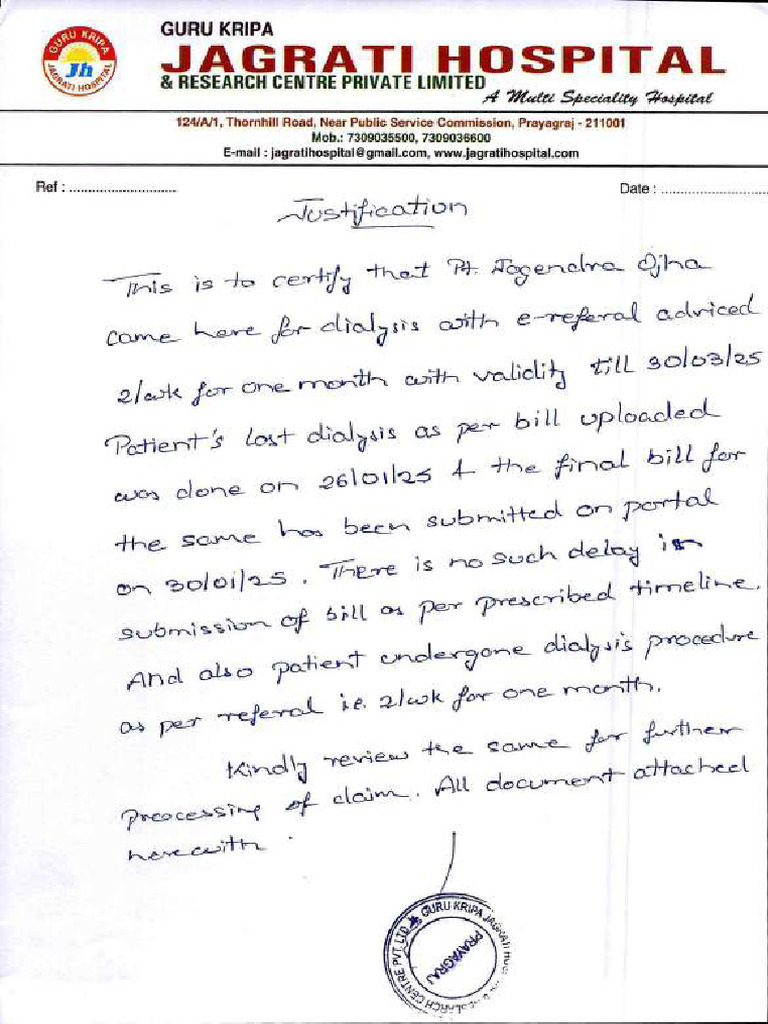 GURU KRIPA
JAGRATI HOSPITAL
& RESEARCH CENTRE PRIVATE LIMITED
A Multi Speciality Hospital
GURU KRIPA
Jh
JAGRATI HOSPITAL
124/A/1, Thornhill Road, Near Public Service Commission, Prayagraj - 211001
Mob.: 7309035500, 7309036600
E-mail : jagratihospital@gmail.com, www.jagratihospital.com
Ref : ............................
Date : ............................
Justification
This is to certify that Pt. Jogendra Ojha
came here for dialysis with e-referal adviced
2/wk for one month with validity till 30/03/25
Patient's last dialysis as per bill uploaded
was done on 26/01/25 & the final bill for
the same has been submitted on portal
on 30/01/25. There is no such delay in
submission of bill as per prescribed timeline.
And also patient undergone dialysis procedure
as per referal i.e. 2/wk for one month.
Kindly review the same for further
preocessing of claim. All document attached
herewith.
GURU KRIPA JAGRATI
RESEARCH CENTRE PVT. LTD.
PRAYAGRAJ